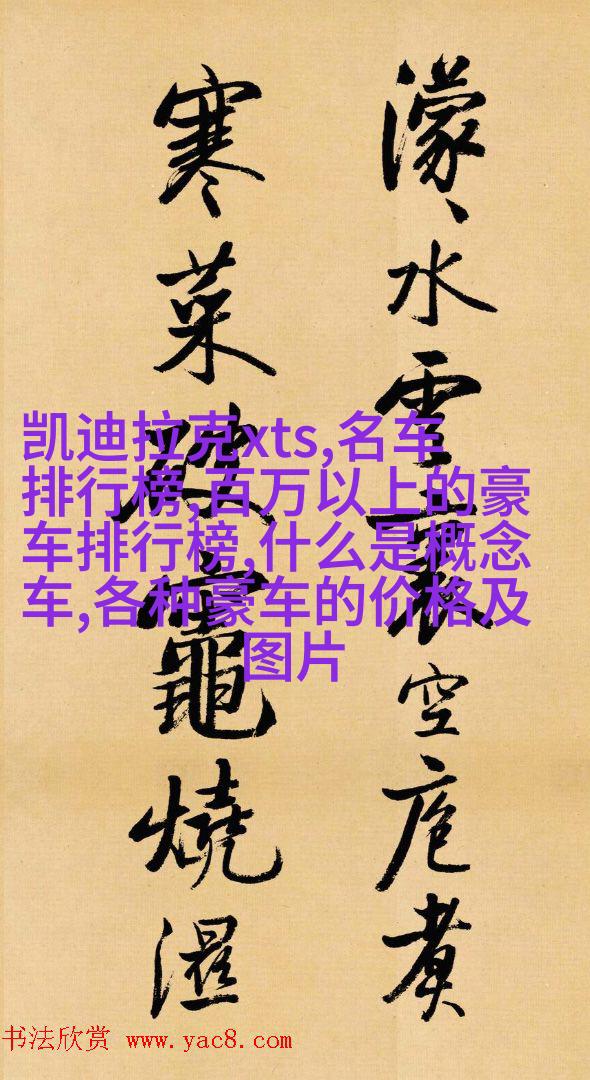 濛、水雲裏空庖煮
寒菜破竈燒濕
凯迪拉克xts,名车
排行榜,百万以上的豪
车排行榜,什么是概念
车,各种豪车的价格及
图片
书法欣赏 www.yac8.com